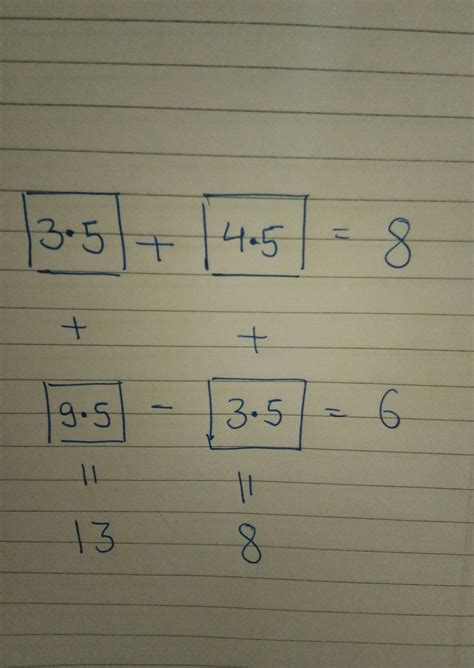 3·5 + 4·5 = 8
+ +
9·5 - 3·5 = 6
= =
13 8